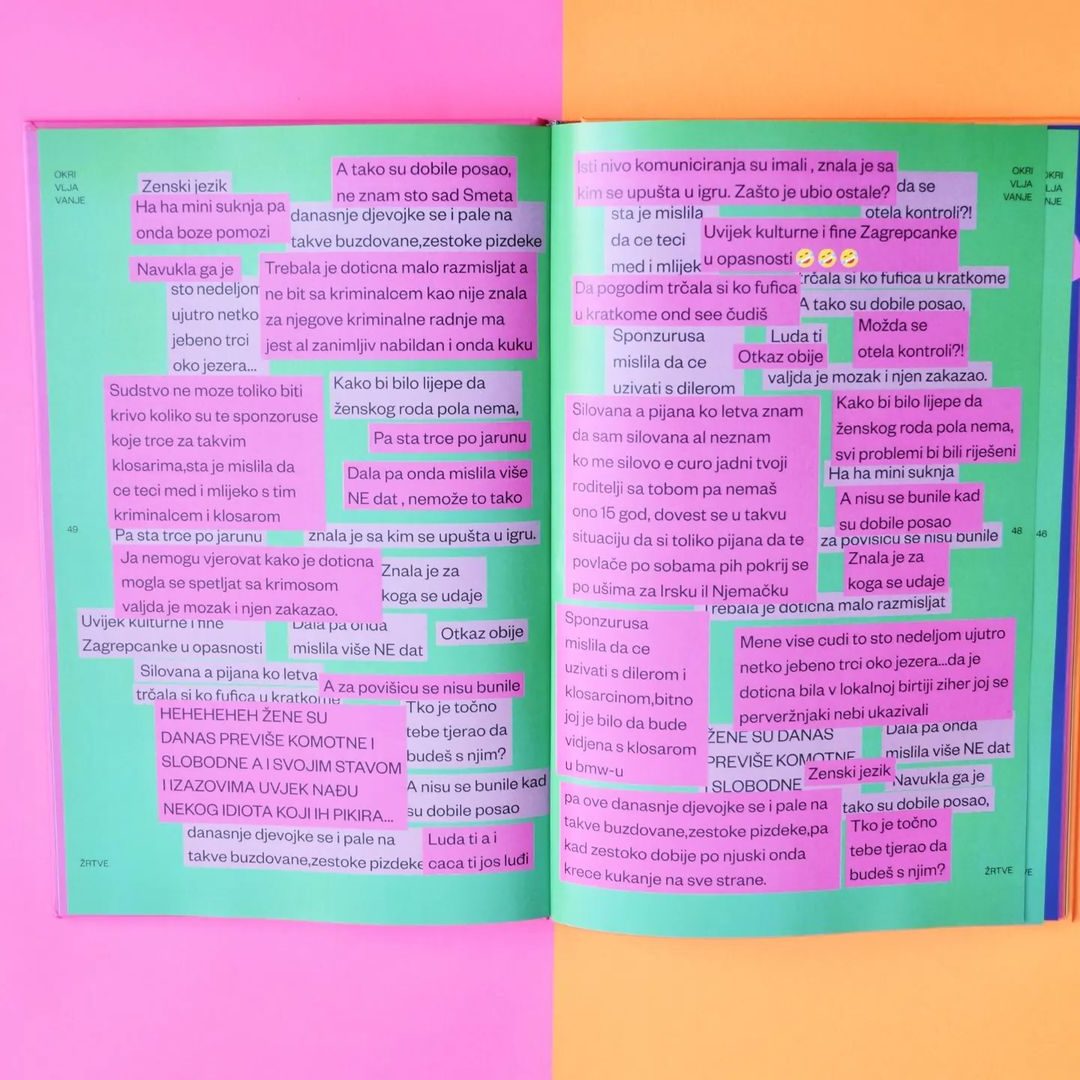 OKRI
VLJA
VANJE
Zenski jezik
A tako su dobile posao,
ne znam sto sad Smeta
Ha ha mini suknja pa
onda boze pomozi
danasnje djevojke se i pale na
takve buzdovane,zestoke pizdeke
Navukla ga je
sto nedeljom
ujutro netko
jebeno trci
oko jezera...
Trebala je doticna malo razmisljat a
ne bit sa kriminalcem kao nije znala
za njegove kriminalne radnje ma
jest al zanimljiv nabildan i onda kuku
Sudstvo ne moze toliko biti
krivo koliko su te sponzoruse
koje trce za takvim
klosarima,sta je mislila da
ce teci med i mlijeko s tim
kriminalcem i klosarom
Kako bi bilo lijepe da
ženskog roda pola nema,
Pa sta trce po jarunu
Dala pa onda mislila više
NE dat , nemože to tako
49
Pa sta trce po jarunu
znala je sa kim se upušta u igru.
Ja nemogu vjerovat kako je doticna
mogla se spetljat sa krimosom
valjda je mozak i njen zakazao.
Znala je za
koga se udaje
Uvijek kulturne i fine
Zagrepcanke u opasnosti
Dala pa onda
mislila više NE dat
Otkaz obije
Silovana a pijana ko letva
trčala si ko fufica u kratkome
A za povišicu se nisu bunile
HEHEHEHEH ŽENE SU
DANAS PREVIŠE KOMOTNE I
SLOBODNE A I SVOJIM STAVOM
I IZAZOVIMA UVJEK NAĐU
NEKOG IDIOTA KOJI IH PIKIRA...
Tko je točno
tebe tjerao da
budeš s njim?
A nisu se bunile kad
su dobile posao
danasnje djevojke se i pale na
takve buzdovane,zestoke pizdeke
Luda ti a i
caca ti jos luđi
ŽRTVE
Isti nivo komuniciranja su imali , znala je sa
kim se upušta u igru. Zašto je ubio ostale?
da se
otela kontroli?!
sta je mislila
da ce teci
med i mlijek
Uvijek kulturne i fine Zagrepcanke
u opasnosti 🤣🤣🤣
trčala si ko fufica u kratkome
Da pogodim trčala si ko fufica
u kratkome ond see čudiš
A tako su dobile posao,
Možda se
otela kontroli?!
Sponzurusa
mislila da ce
uzivati s dilerom
Luda ti
Otkaz obije
valjda je mozak i njen zakazao.
Silovana a pijana ko letva znam
da sam silovana al neznam
ko me silovo e curo jadni tvoji
roditelji sa tobom pa nemaš
ono 15 god, dovest se u takvu
situaciju da si toliko pijana da te
povlače po sobama pih pokrij se
po ušima za Irsku il Njemačku
Kako bi bilo lijepe da
ženskog roda pola nema,
svi problemi bi bili riješeni
Ha ha mini suknja
A nisu se bunile kad
su dobile posao
za povišicu se nisu bunile
48
Znala je za
koga se udaje
Trebala je doticna malo razmisljat
Sponzurusa
mislila da ce
uzivati s dilerom i
klosarcinom,bitno
joj je bilo da bude
vidjena s klosarom
u bmw-u
Mene vise cudi to sto nedeljom ujutro
netko jebeno trci oko jezera...da je
doticna bila v lokalnoj birtiji ziher joj se
perveržnjaki nebi ukazivali
ŽENE SU DANAS
PREVIŠE KOMOTNE
I SLOBODNE
Dala pa onda
mislila više NE dat
Zenski jezik
Navukla ga je
tako su dobile posao,
pa ove danasnje djevojke se i pale na
takve buzdovane,zestoke pizdeke,pa
kad zestoko dobije po njuski onda
krece kukanje na sve strane.
Tko je točno
tebe tjerao da
budeš s njim?
OKRI
VLJA
VANJE
ŽRTVE
OKRI
VLJA
NJE
46
VE